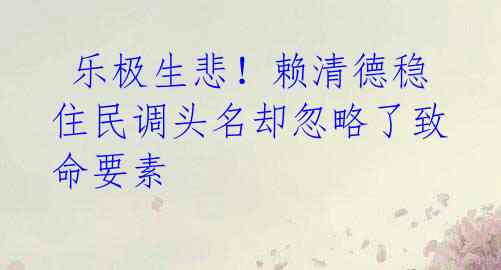 乐极生悲！赖清德稳
住民调头名却忽略了致
命要素